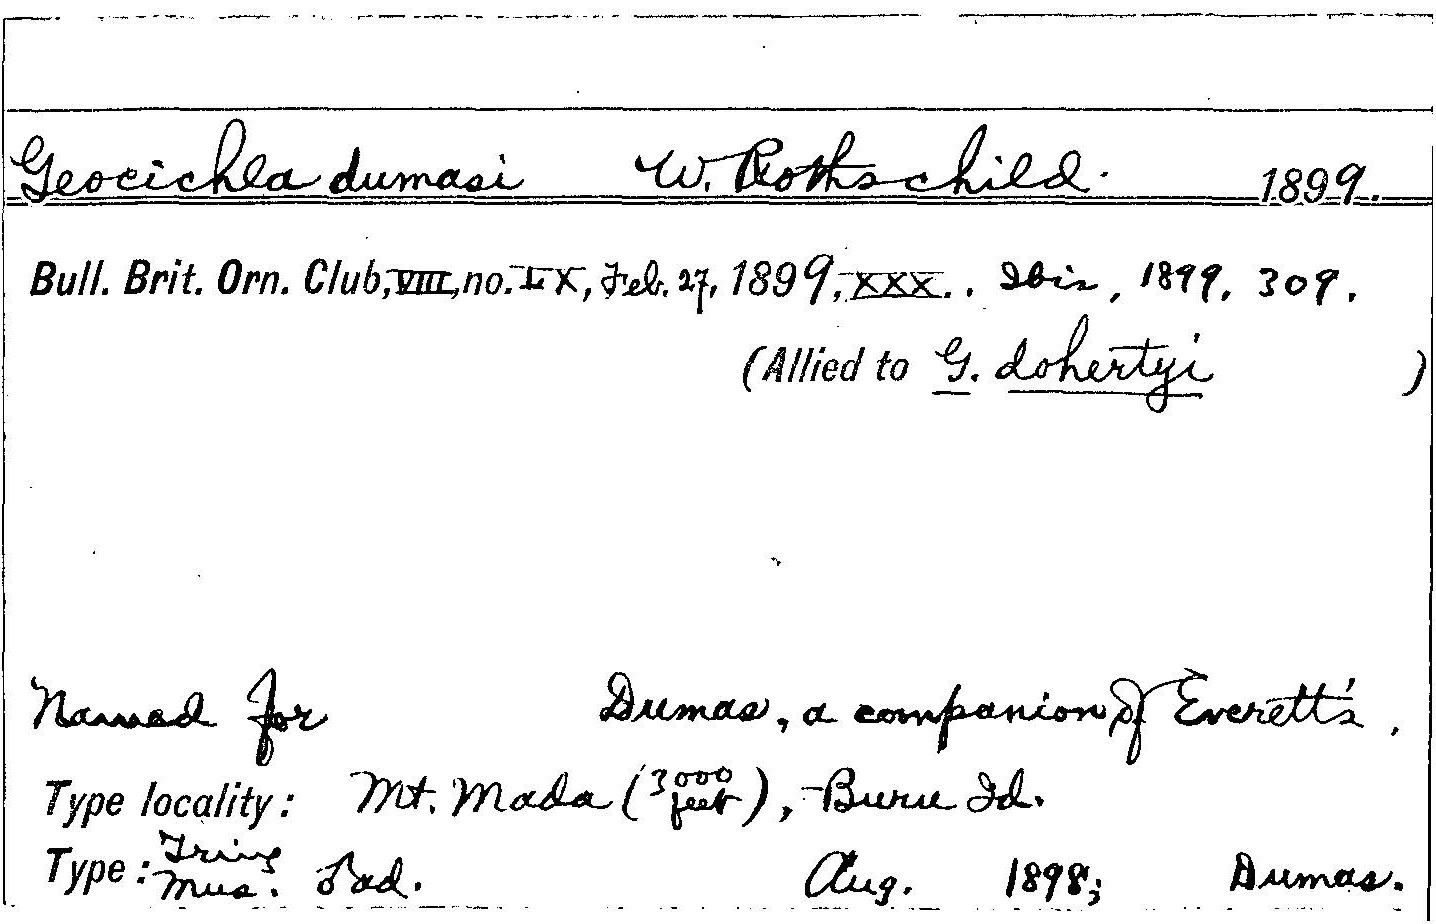 Geocichla dumasi W. Rothschild. 1899.
Bull. Brit. Orn. Club, VIII, no. LX, Feb. 27, 1899, XXX.. Ibis, 1899, 309.
(Allied to G. dohertyi )
Named for Dumas, a companion of Everett's.
Type locality: Mt. Mada (3000 feet), Buru Id.
Type: Tring Mus. ad. Aug. 1898; Dumas.